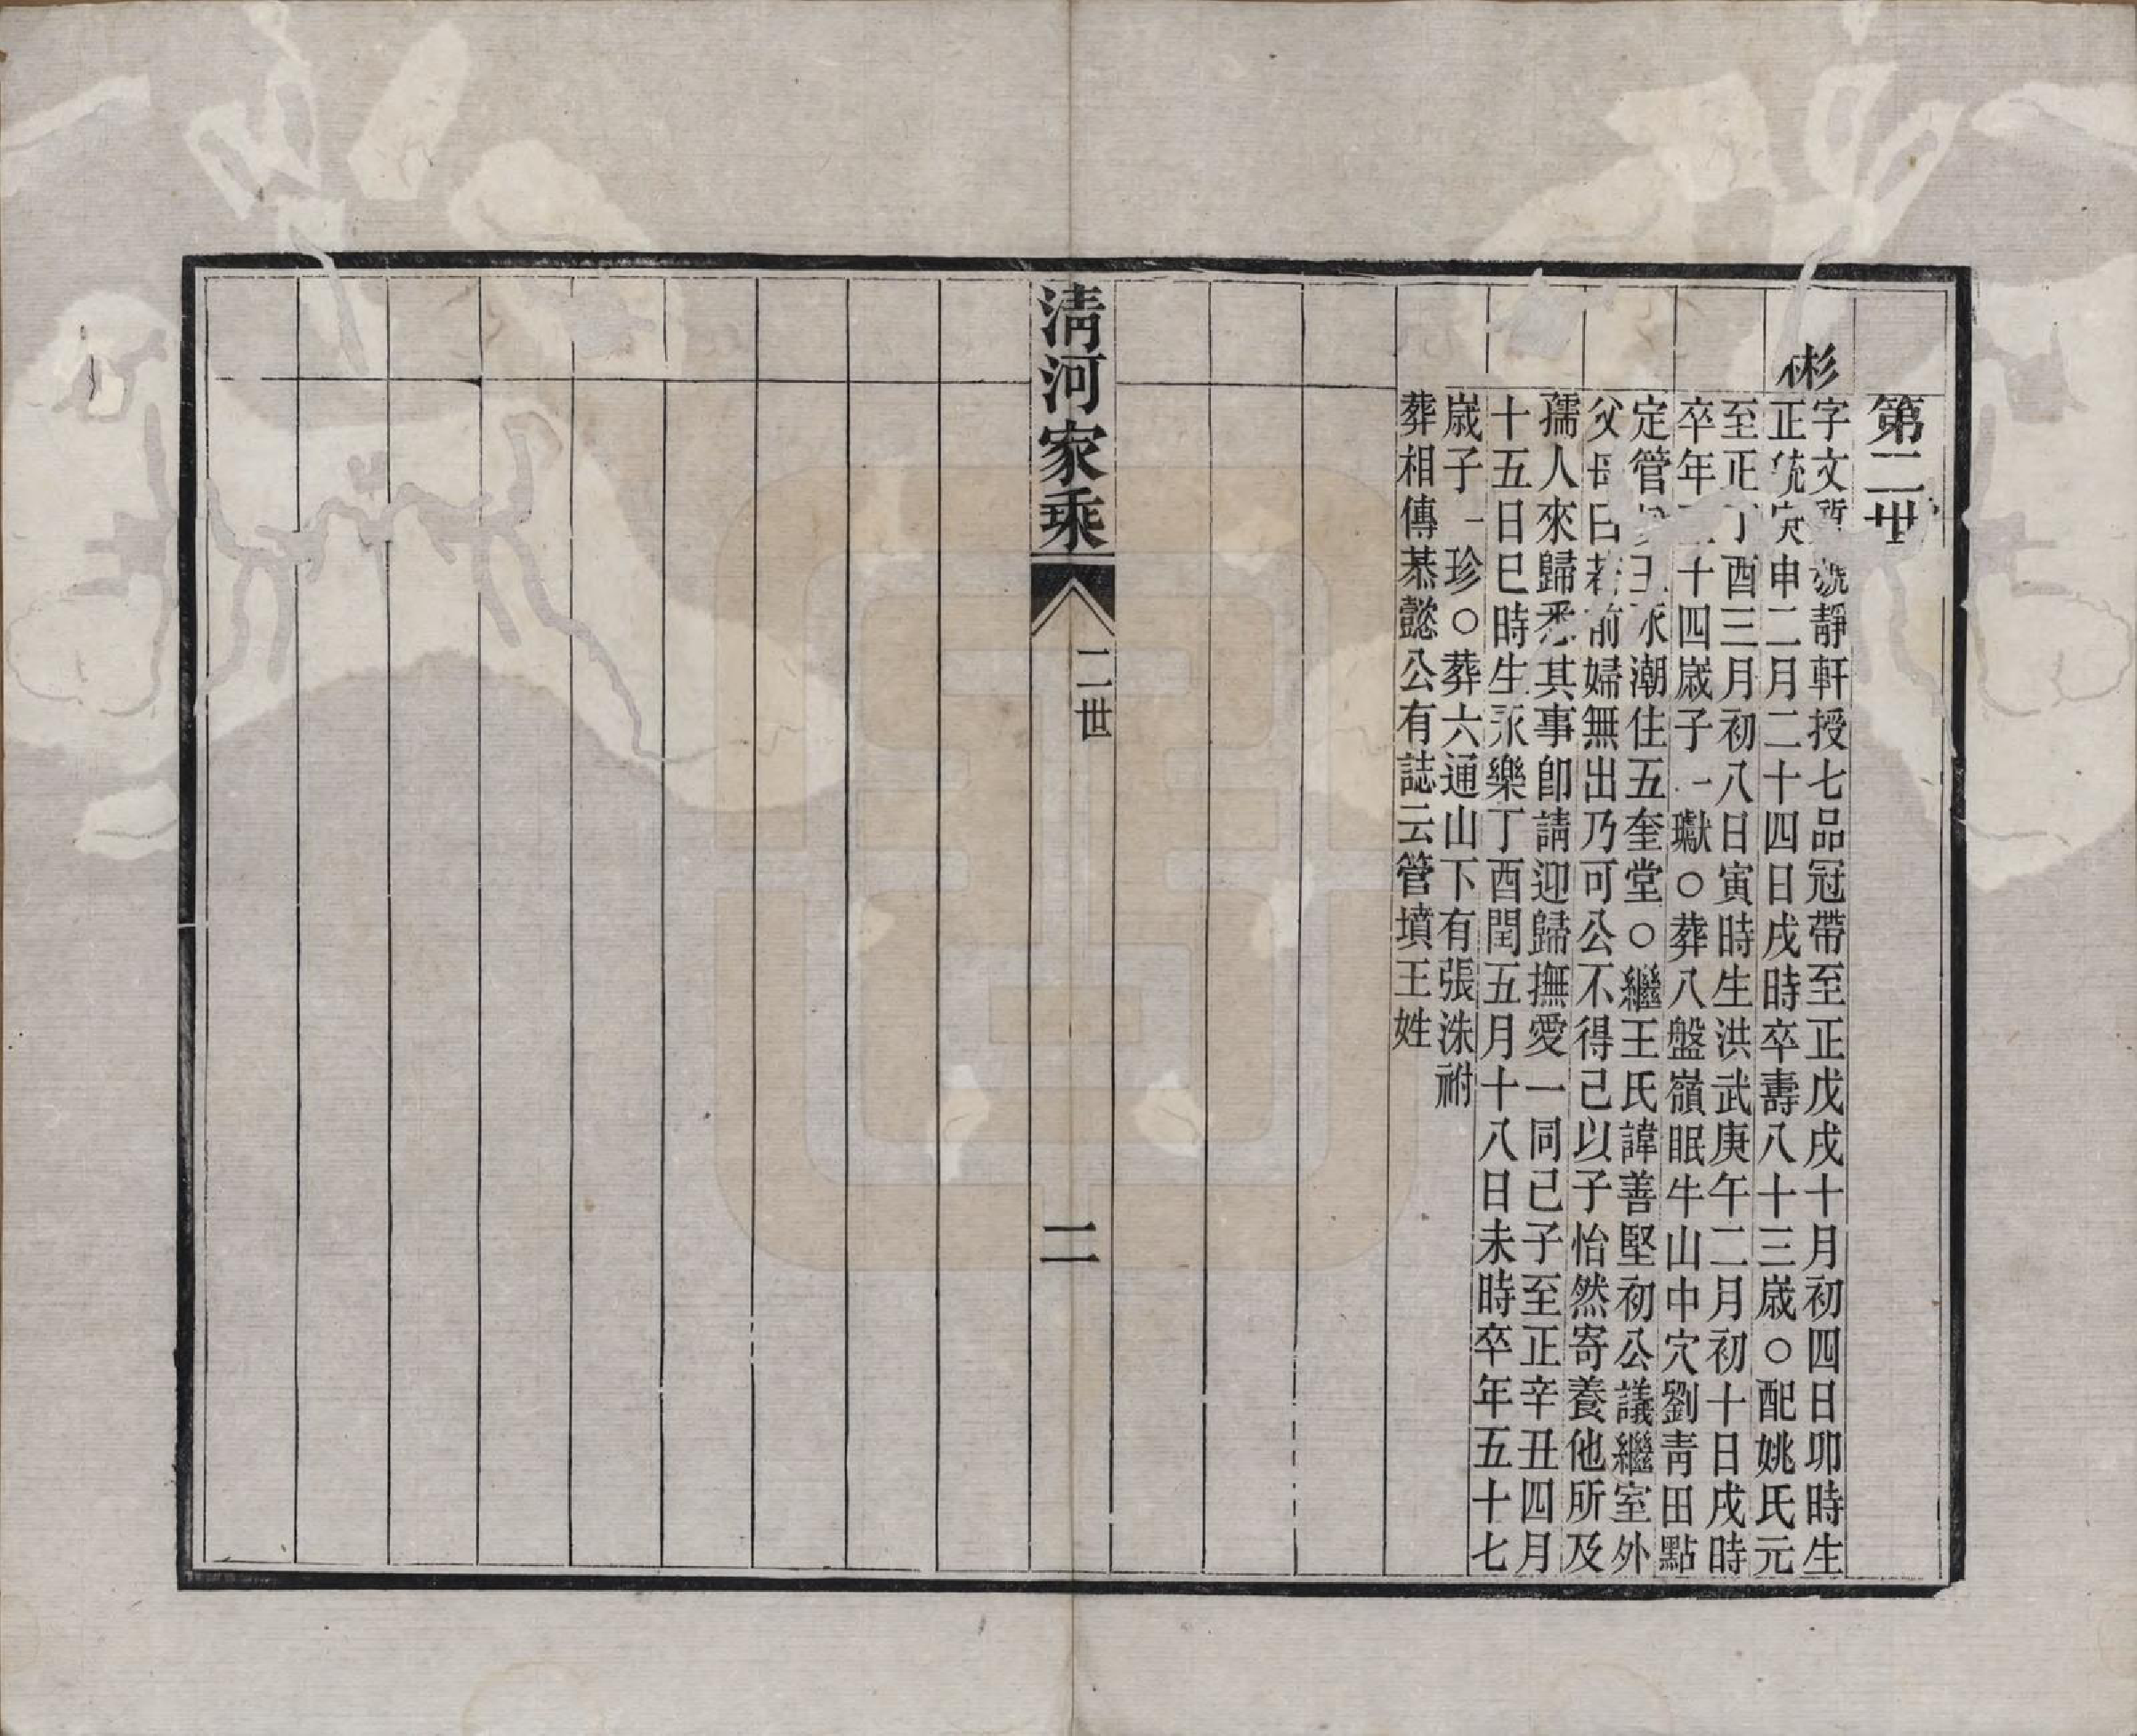 第二世
彬
字文號靜軒授七品冠帶至正戊戌十月初四日卯時生
正統申二月二十四日戌時卒壽八十三歲○配姚氏元
至正丁酉三月初八日寅時生洪武庚午二月初十日戌時
卒年十四歲子一瓛○葬八盤嶺眠牛山中穴劉靑田點
定管王永潮住五奎堂○繼王氏諱善堅初公議繼室外
父母曰若前婦無出乃可公不得已以子怡然寄養他所及
孺人來歸悉其事卽請迎歸撫愛一同己子至正辛丑四月
十五日巳時生永樂丁酉閏五月十八日未時卒年五十七
歲子一珍○葬六通山下有張洙祔
葬相傳恭懿公有誌云管墳王姓
清河家乘
二世
二